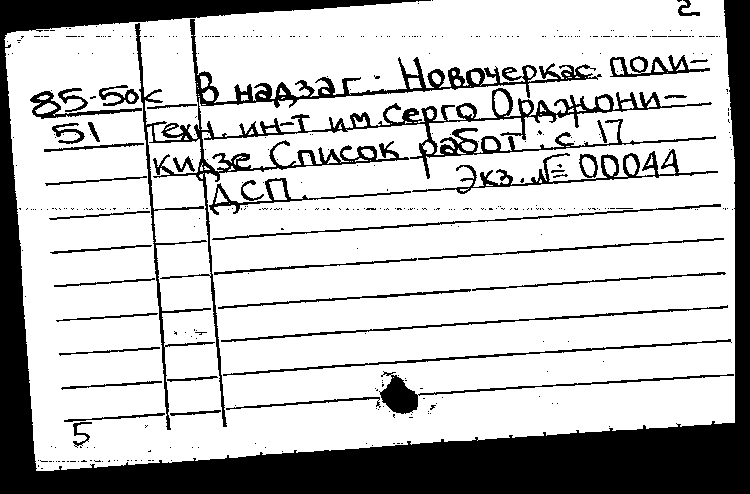 2
85-50к В надзаг.: Новочеркас. поли=
51 техн. ин-т им. Серго Орджони-
кидзе. Список работ: с. 17.
ДСП. Экз. № 00044
5